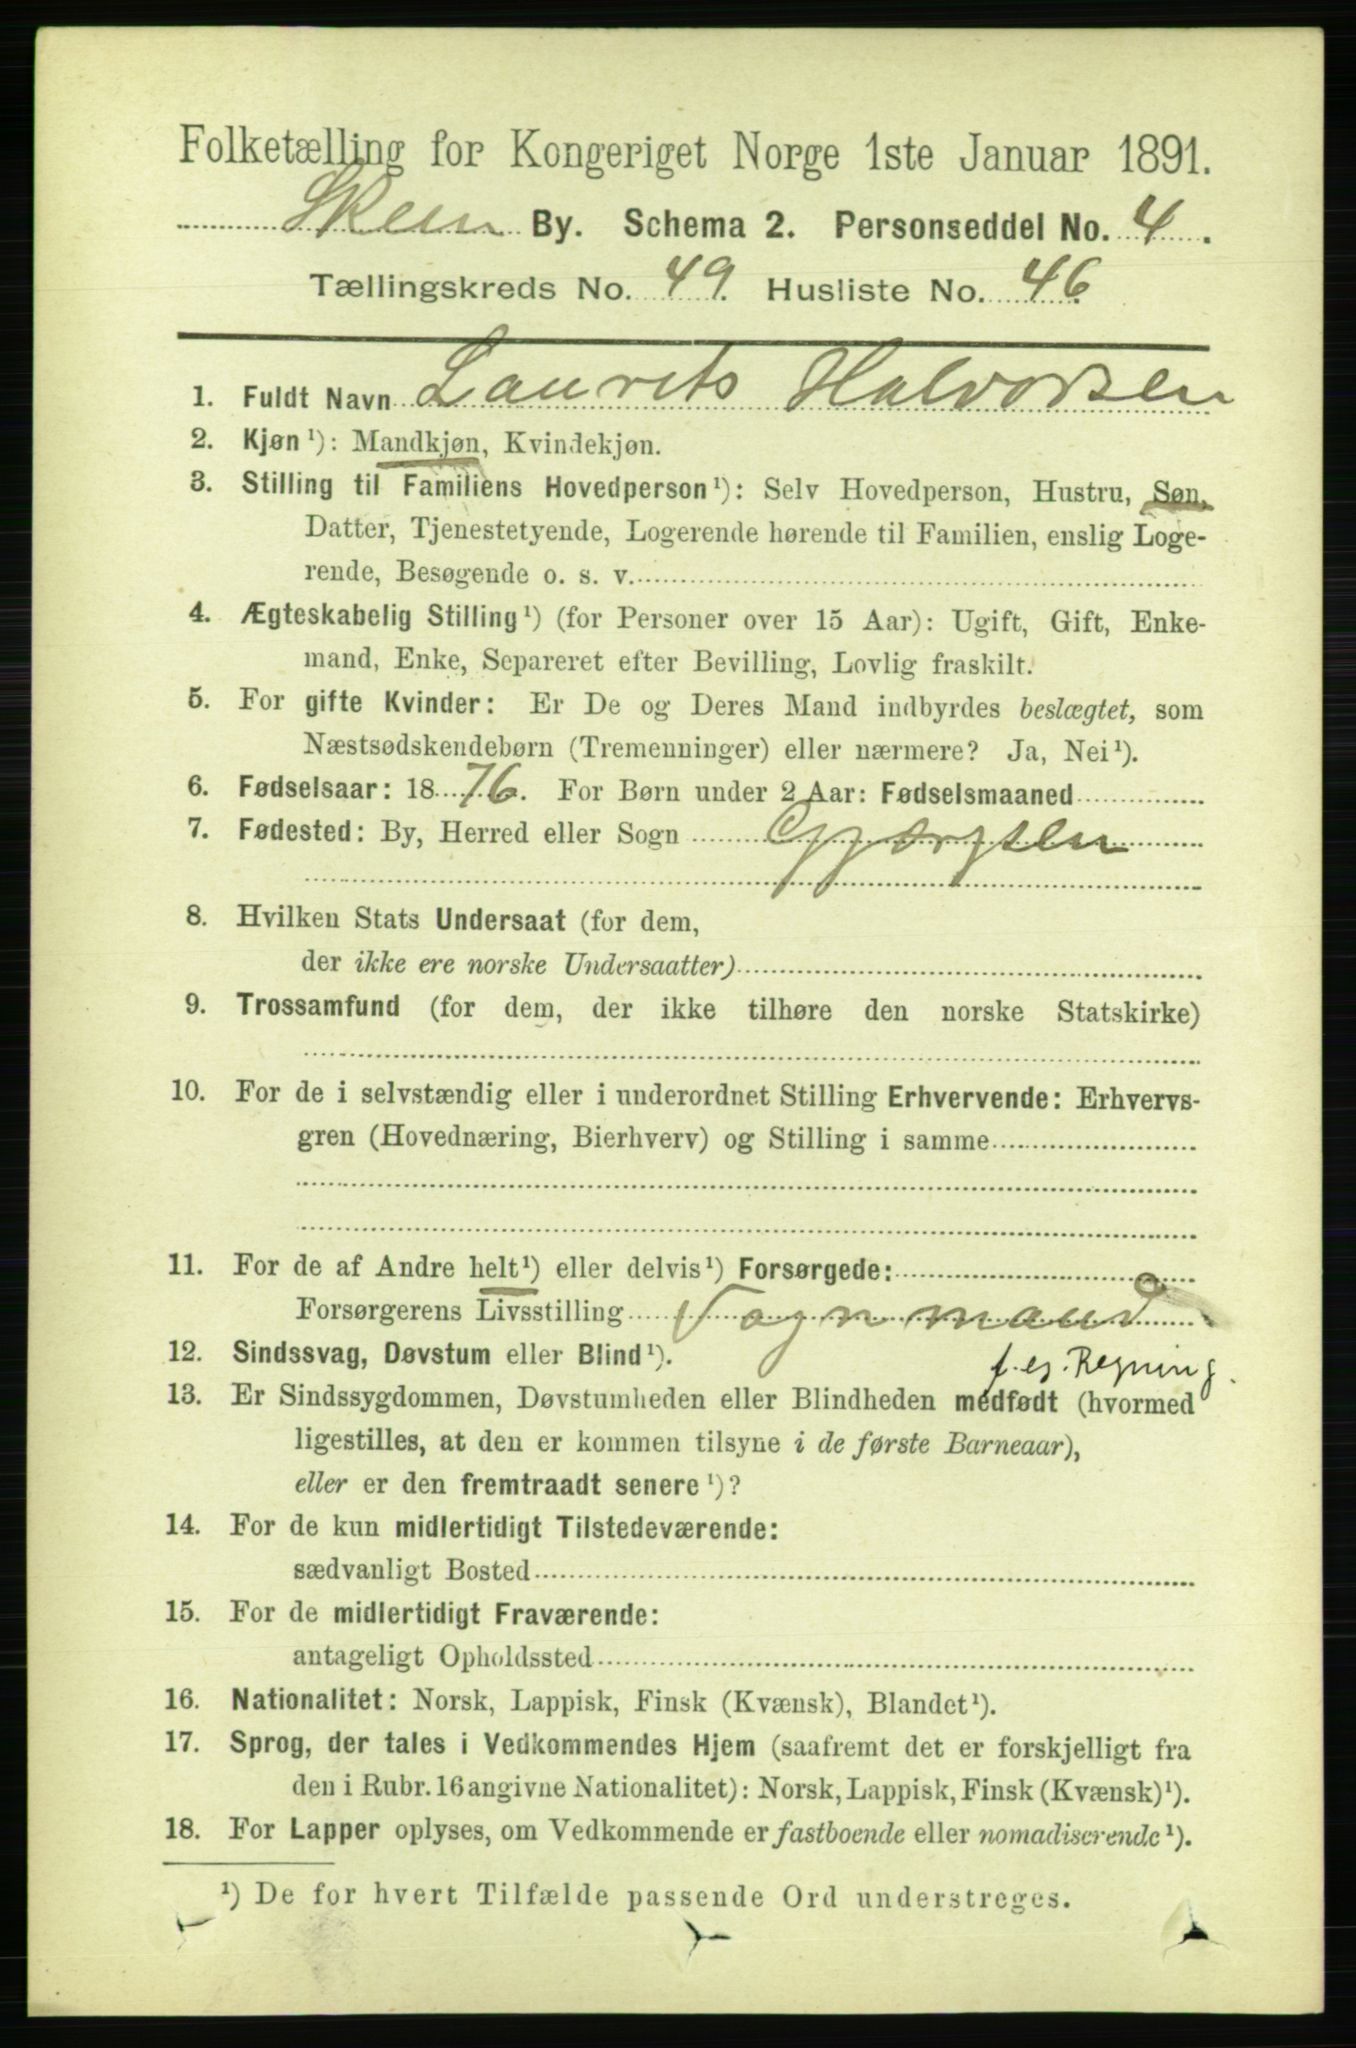 Folketælling for Kongeriget Norge 1ste Januar 1891.
Skien By. Schema 2. Personseddel No. 4.
Tællingskreds No. 49. Husliste No. 46
1. Fuldt Navn Laurits Halvorsen
2. Kjøn¹): Mandkjøn, Kvindekjøn.
3. Stilling til Familiens Hovedperson¹): Selv Hovedperson, Hustru, Søn,
Datter, Tjenestetyende, Logerende hørende til Familien, enslig Loge-
rende, Besøgende o. s. v.
4. Ægteskabelig Stilling¹) (for Personer over 15 Aar): Ugift, Gift, Enke-
mand, Enke, Separeret efter Bevilling, Lovlig fraskilt.
5. For gifte Kvinder: Er De og Deres Mand indbyrdes beslægtet, som
Næstsødskendebørn (Tremenninger) eller nærmere? Ja, Nei¹).
6. Fødselsaar: 1876. For Børn under 2 Aar: Fødselsmaaned
7. Fødested: By, Herred eller Sogn Gjerpen
8. Hvilken Stats Undersaat (for dem,
der ikke ere norske Undersaatter)
9. Trossamfund (for dem, der ikke tilhøre den norske Statskirke)
10. For de i selvstændig eller i underordnet Stilling Erhvervende: Erhvervs-
gren (Hovednæring, Bierhverv) og Stilling i samme
11. For de af Andre helt¹) eller delvis¹) Forsørgede:
Forsørgerens Livsstilling Vognmand
f. eg. Regning.
12. Sindssvag, Døvstum eller Blind¹).
13. Er Sindssygdommen, Døvstumheden eller Blindheden medfødt (hvormed
ligestilles, at den er kommen tilsyne i de første Barneaar),
eller er den fremtraadt senere¹)?
14. For de kun midlertidigt Tilstedeværende:
sædvanligt Bosted
15. For de midlertidigt Fraværende:
antageligt Opholdssted
16. Nationalitet: Norsk, Lappisk, Finsk (Kvænsk), Blandet¹).
17. Sprog, der tales i Vedkommendes Hjem (saafremt det er forskjelligt fra
den i Rubr. 16 angivne Nationalitet): Norsk, Lappisk, Finsk (Kvænsk)¹).
18. For Lapper oplyses, om Vedkommende er fastboende eller nomadiserende¹).
¹) De for hvert Tilfælde passende Ord understreges.